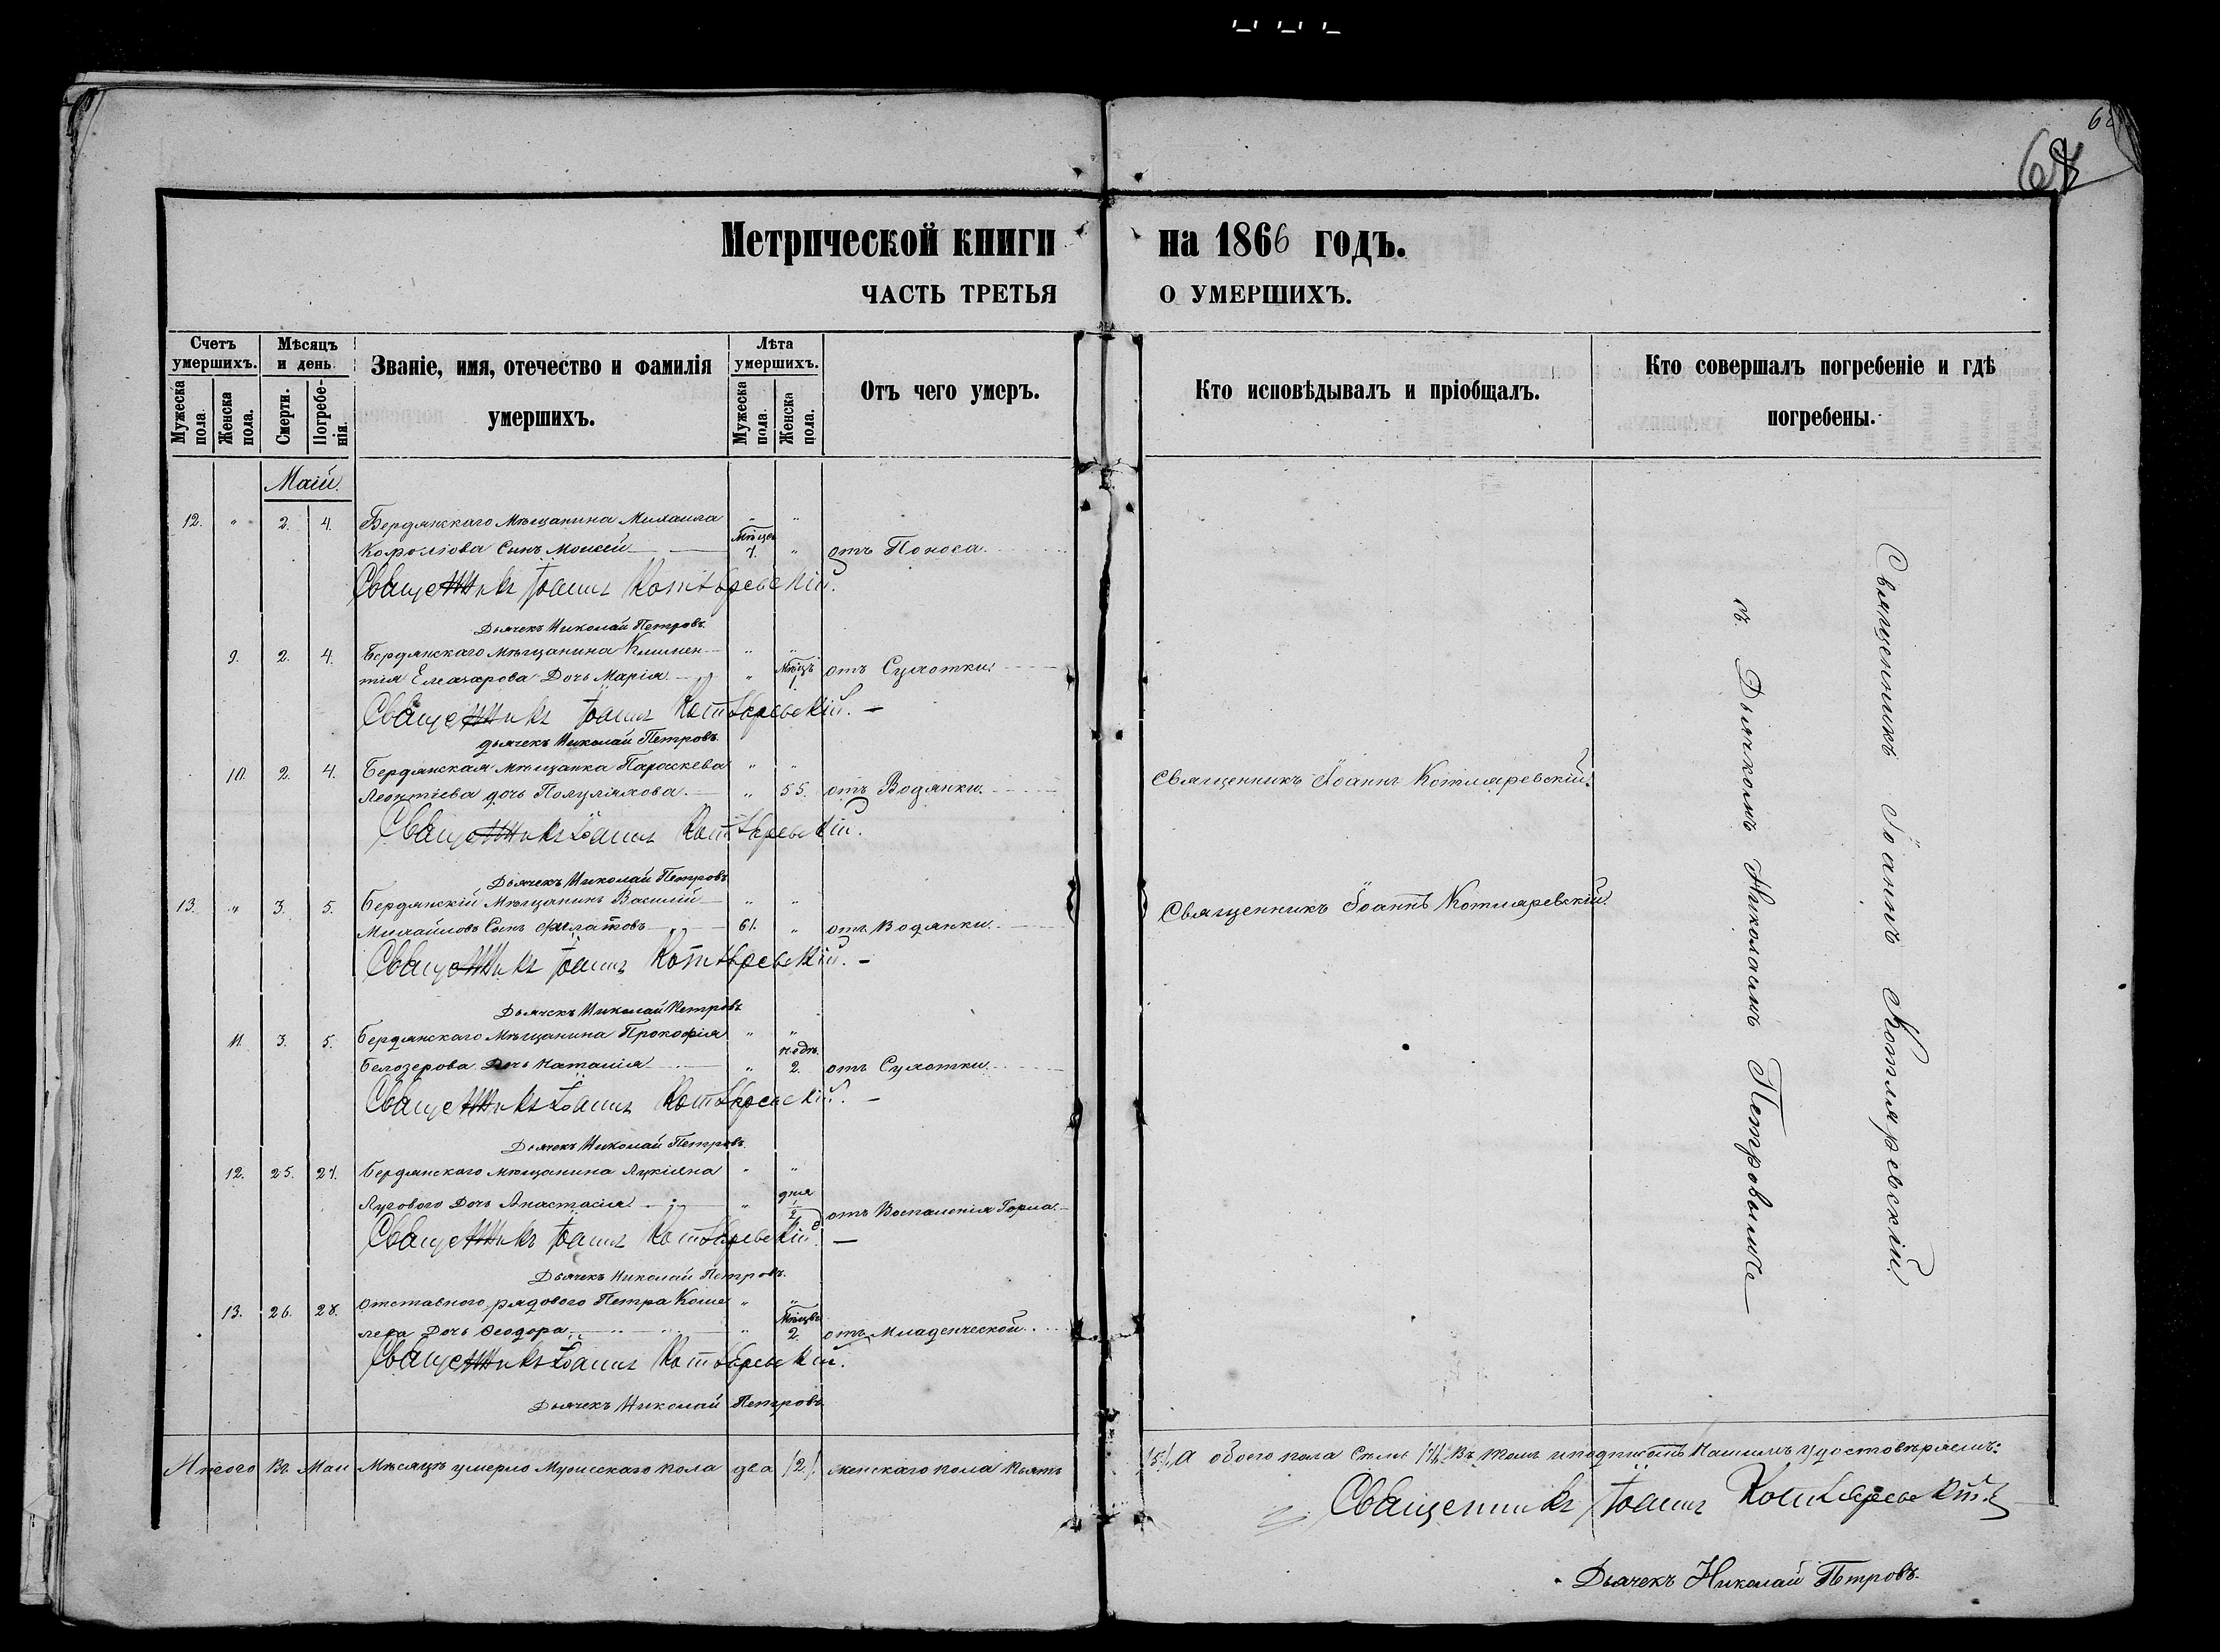 68
Метрической книги на 1866 годъ.
ЧАСТЬ ТРЕТЬЯ О УМЕРШИХЪ.
Счетъ умершихъ.
Мужеска пола.
Женска пола.
Мѣсяцъ и день.
Смерти.
Погребенія.
Званіе, имя, отечество и фамилія умершихъ.
Лѣта умершихъ.
Мужеска пола.
Женска пола.
Отъ чего умеръ.
Кто исповѣдывалъ и пріобщалъ.
Кто совершалъ погребеніе и гдѣ погребены.
Маій.
12. " 2. 4. Бердянскаго Мѣщанина Михаила " "
Королiова Сынъ Моисей Мѣцов 7. " отъ Поноса.
Священникъ Іоаннъ Котляревскій.
Дьячекъ Николай Петровъ.
9. 2. 4. Бердянскаго Мѣщанина Климен- " "
тія Елеазарова Дочь Марія " Мѣцъ 1. отъ Сухотки.
Священникъ Іоаннъ Котляревскій. —
Дьячекъ Николай Петровъ.
10. 2. 4. Бердянская Мѣщанка Параскева " "
Леонтіева дочь Полуляхова. " 55. отъ Водянки. Священникъ Іоаннъ Котляревскій.
Священникъ Іоаннъ Котляревскій.
Дьячекъ Николай Петровъ
13. " 3. 5. Бердянскій Мѣщанинъ Василій " " Священникъ Іоаннъ Котляревскій.
Михайловъ Сынъ Филатовъ 61. " отъ Водянки.
Священникъ Іоаннъ Котляревскій. —
Дьячекъ Николай Петровъ
11. 3. 5. Бердянскаго Мѣщанина Прокофія " "
Белозерова Дочь Наталія " нѣдѣ. 2. отъ Сухотки.
Священникъ Іоаннъ Котляревскій. —
Дьячекъ Николай Петровъ.
12. 25. 27. Бердянскаго Мѣщанина Лукіяна " "
Лугового Дочь Анастасія " дня 1/2 отъ Воспаленія Горла.
Священникъ Іоаннъ Котляревскій. —
Дьячекъ Николай Петровъ.
13. 26. 28. Отставного рядового Петра Коше " "
лева Дочь Феодора " Мѣцов 2. отъ Младенческой.
Священникъ Іоаннъ Котляревскій.
Дьячекъ Николай Петровъ
Священникъ Іоаннъ Котляревскій
съ Дьячкомъ Николаемъ Петровымъ
Итого Въ Маи Мѣсяцѣ умерло Мужескаго пола два /2/. женскаго пола пять /5/, А обоего пола Семь /7/. Въ томъ и подписомъ Нашимъ Удостовѣряемъ:
Священникъ Іоаннъ Котляревскій.
Дьячекъ Николай Петровъ.